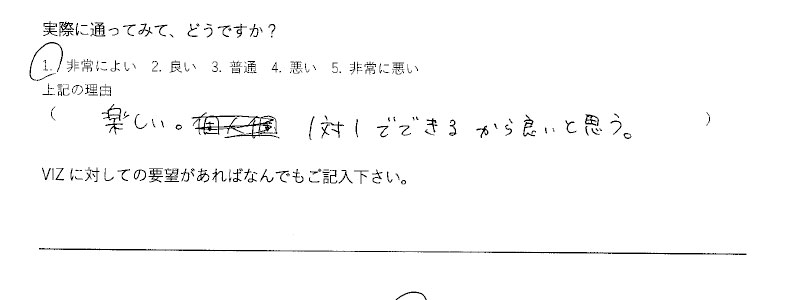 実際に通ってみて、どうですか？
1. 非常によい 2. 良い 3. 普通 4. 悪い 5. 非常に悪い
上記の理由
（ 楽しい。 1対1でできるから良いと思う。 ）
VIZに対しての要望があればなんでもご記入下さい。